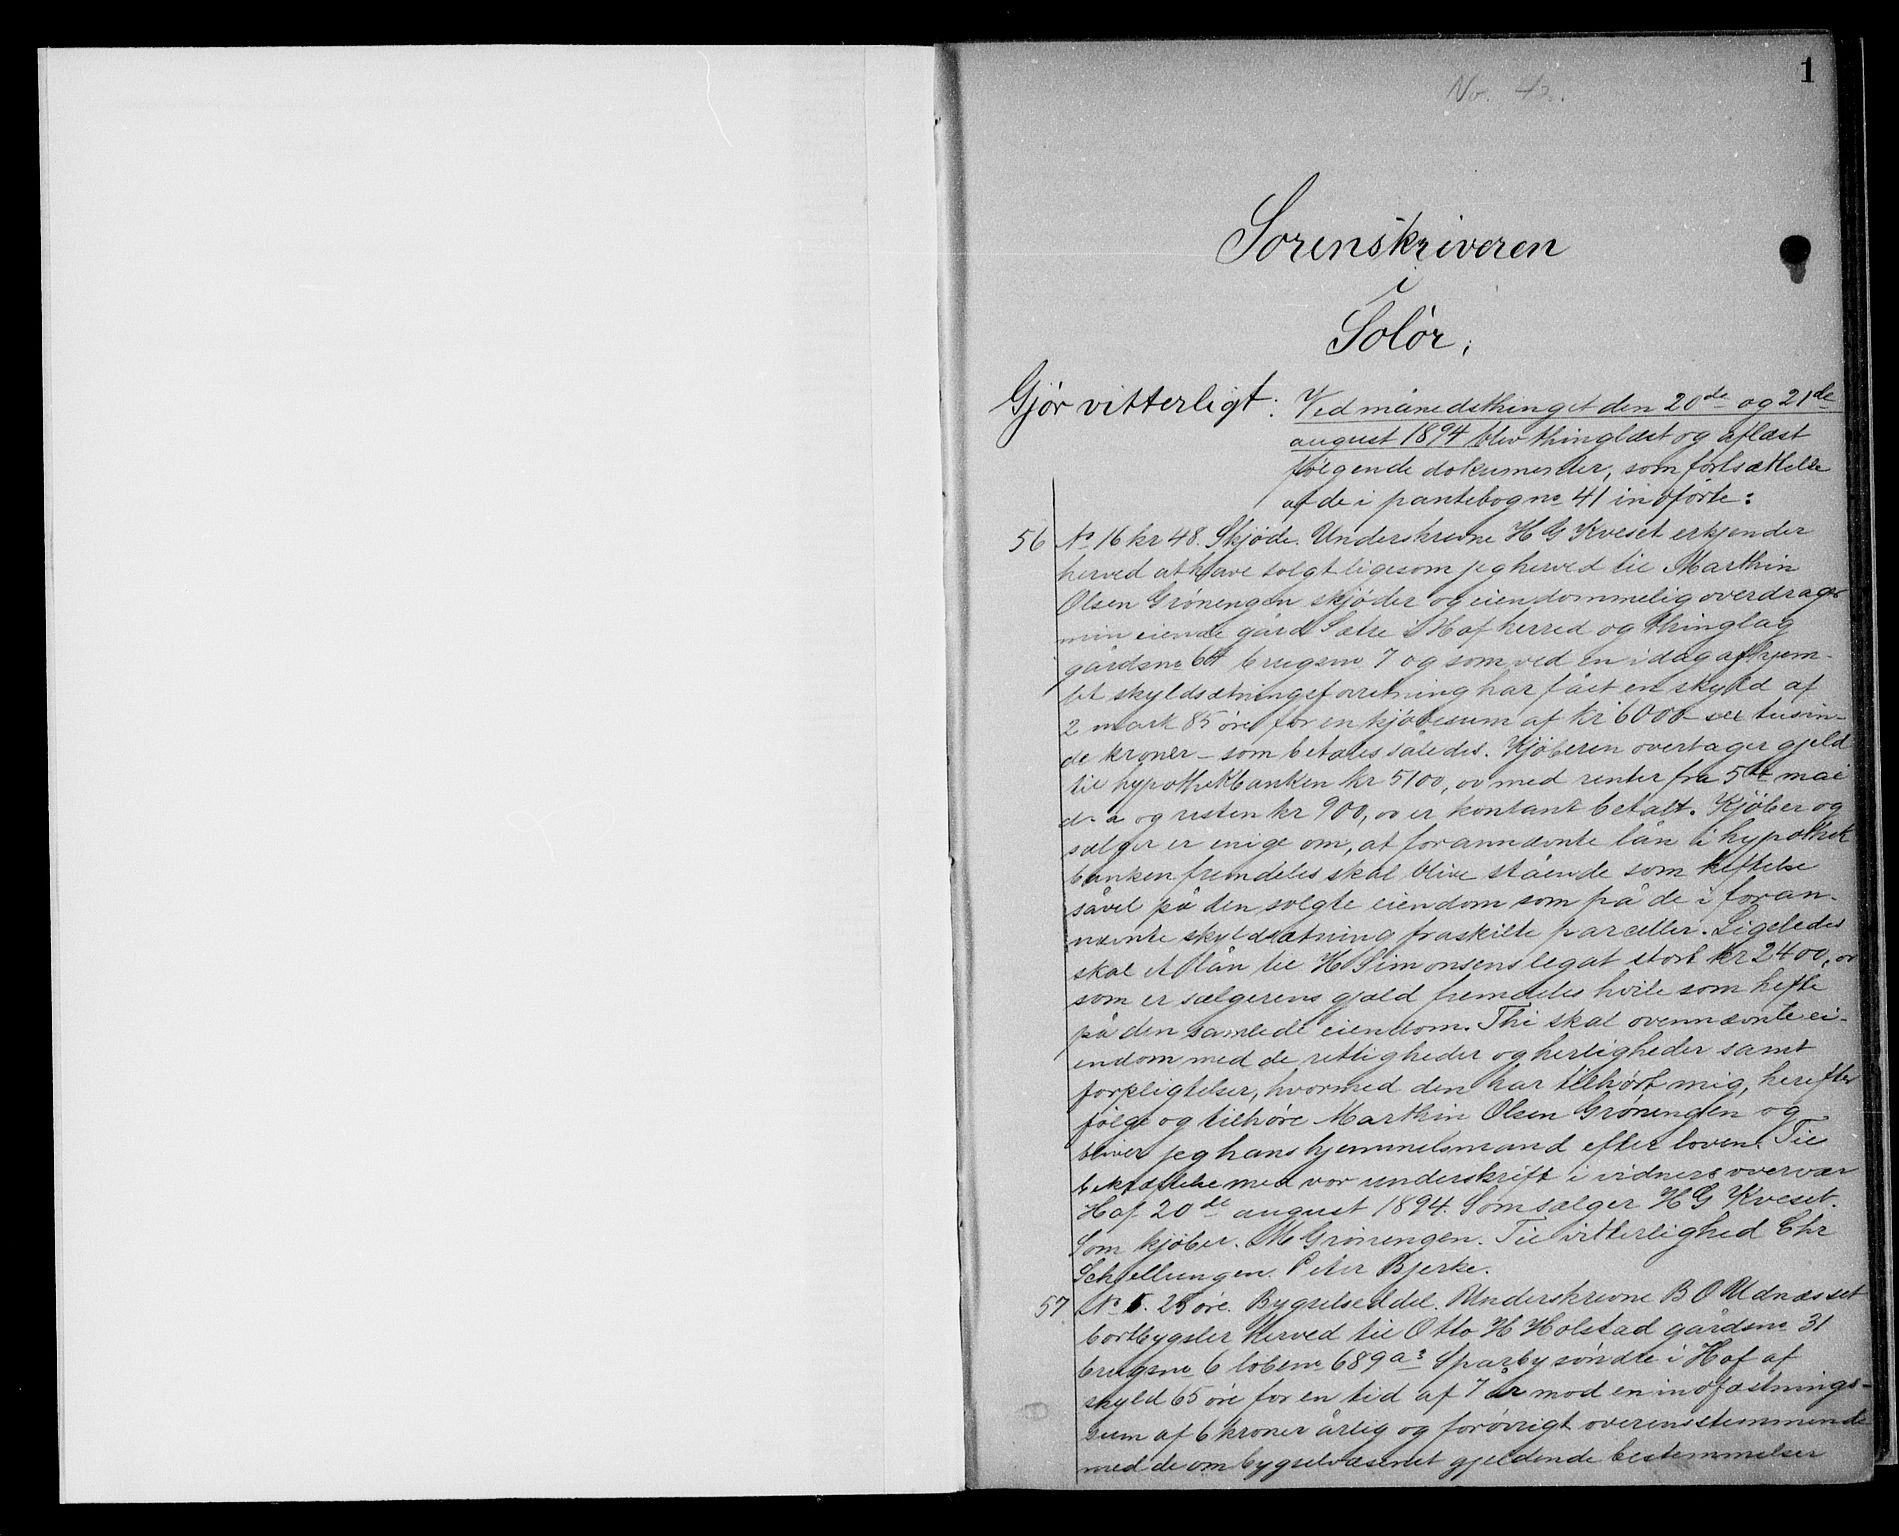 1
No. 42.
Sorenskriveren
i
Solør,
Gjør vitterligt: Ved månedsthinget den 20de og 21de
august 1894 blev thinglæst og aflæst
følgende dokumenter, som fortsættelse
af de i pantebog no 41 indførte:
56 No 16 kr 48. Skjøde. Underskrevne H G Kveset erkjender
herved at have solgt ligesom jeg herved til Marthin
Olsen Grøningen skjøder og eiendommelig overdrager
min eiende gård Sætre i Hof herred og thinglag
gårdsno 64 brugsno 7 og som ved en idag afhjem-
let skyldsætningsforretning har fået en skyld af
2 mark 85 øre for en kjøbesum af kr 6000 - sex tusin-
de kroner - som betales således. Kjøberen overtager gjeld
til hypothekbanken kr 5100,00 med renter fra 5te mai
d. å og resten kr 900,00 er kontant betalt. Kjøber og
sælger er enige om, at forannævnte lån i hypothek
banken fremdeles skal blive stående som heftelse
såvel på den solgte eiendom som på de i foran-
nævnte skyldsætning fraskilte parceller. Ligeledes
skal et lån til H Simonsens legat stort kr 2400,00
som er sælgerens gjæld fremdeles hvile som hefte
på den samlede eiendom. Thi skal ovennævnte ei-
endom med de rettigheder og herligheder samt
forpligtelser, hvormed den har tilhørt mig, herefter
følge og tilhøre Marthin Olsen Grøningen og
bliver jeg hans hjemmelsmand efter loven. Til
bekræftelse med vor underskrift i vidners overvær
Hof 20de august 1894. Som sælger H G Kveset.
Som kjøber. M Grøningen. Til vitterlighed Chr
Schjellungen. Peter Bjerke.
57 No 5. 25 øre. Bygselseddel. Underskrevne B O Udnæsset
bortbygsler herved til Otto H Holstad gårdsno 31
brugsno 6 løbeno 689a3 Sparby søndre i Hof af
skyld 65 øre for en tid af 7 år mod en indfæstnings-
sum af 6 kroner årlig og forøvrigt overensstemmende
med de om bygselvæsenet gjeldende bestemmelser